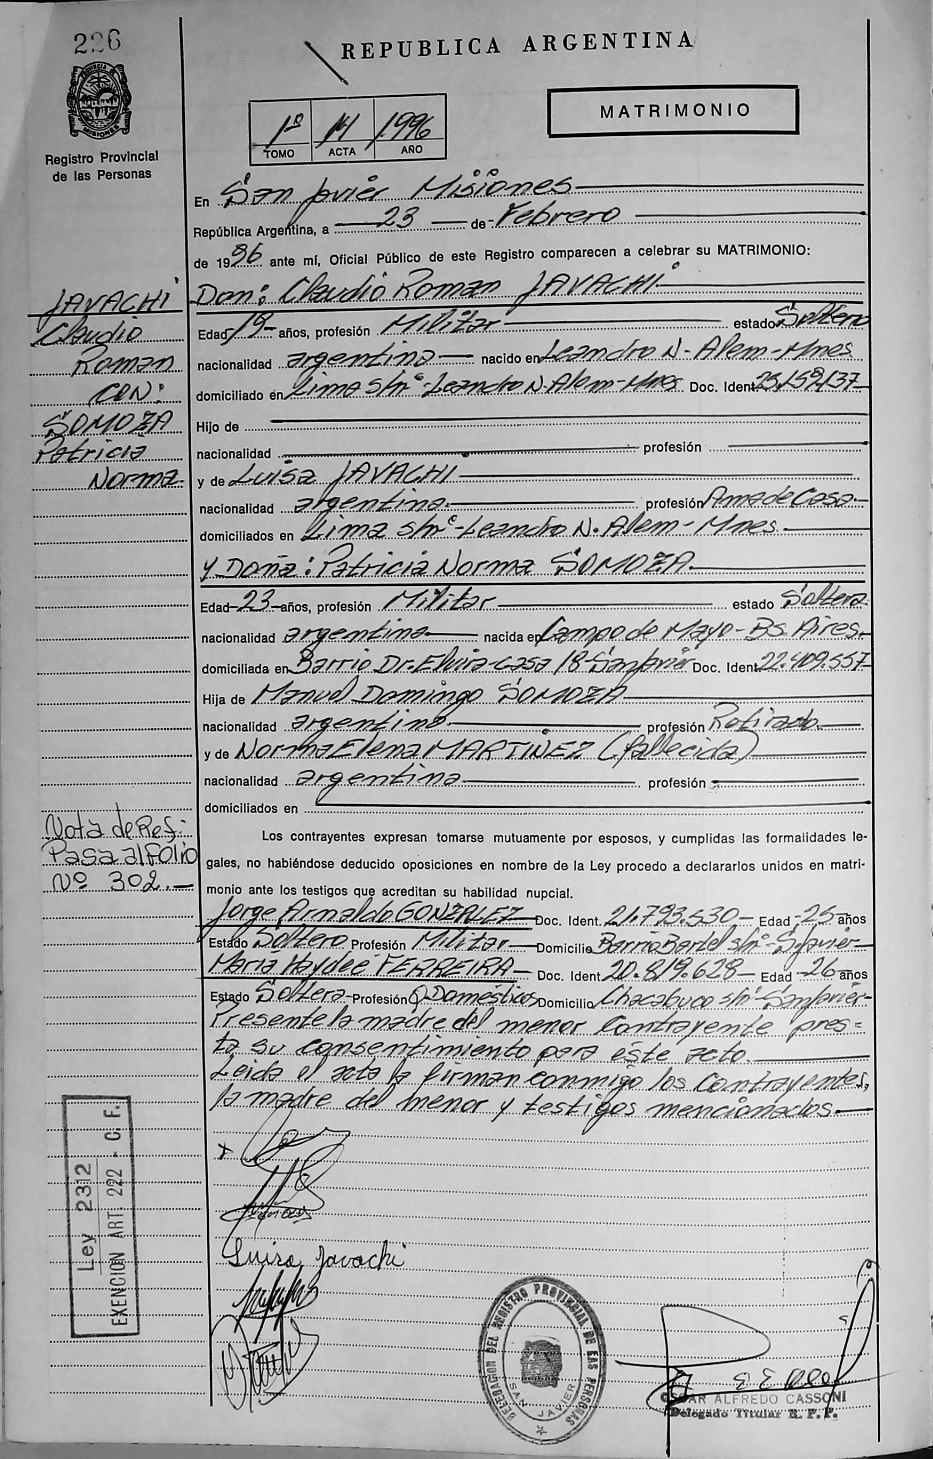 226
REPUBLICA ARGENTINA
MATRIMONIO
1º 14 1996
TOMO ACTA AÑO
Registro Provincial
de las Personas
En San Javier Misiones
República Argentina, a 23 de Febrero
de 1996 ante mí, Oficial Público de este Registro comparecen a celebrar su MATRIMONIO:
Don: Claudio Roman JAVACHI
JAVACHI
Claudio
Roman
CON:
SOMOZA
Patricia
Norma
Edad 19 años, profesión Militar estado Soltero
nacionalidad argentina nacido en Leandro N. Alem-Mnes
domiciliado en Lima s/nº-Leandro N. Alem-Mnes Doc. Ident.
Hijo de
nacionalidad profesión
y de Luisa JAVACHI
nacionalidad argentina profesión Ama de Casa
domiciliados en Lima s/nº-Leandro N. Alem-Mnes.
y Doña: Patricia Norma SOMOZA.
Edad 23 años, profesión Militar estado Soltera
nacionalidad argentina nacida en Campo de Mayo-Bs. Aires.
domiciliada en Barrio Dr. Elvira-casa 18-San Javier Doc. Ident. 22.409.557
Hija de Manuel Domingo SOMOZA
nacionalidad argentino profesión Retirado.
y de Norma Elena MARTINEZ (fallecida)
nacionalidad argentina profesión
domiciliados en
Nota de Ref:
Pasa al Folio
Nº 302.-
Los contrayentes expresan tomarse mutuamente por esposos, y cumplidas las formalidades le-
gales, no habiéndose deducido oposiciones en nombre de la Ley procedo a declararlos unidos en matri-
monio ante los testigos que acreditan su habilidad nupcial.
Jorge Arnaldo GONZALEZ Doc. Ident. 21.793.530 Edad 25 años
Estado Soltero Profesión Militar Domicilio Barrio Bartel s/nº-S. Javier
Maria Haydeé FERREIRA Doc. Ident 20.819.628 Edad 26 años
Estado Soltera Profesión Q Domésticos Domicilio Chacabuco s/nº-San Javier
Presente la madre del menor contrayente pres=
ta su consentimiento para éste acto.
Leida el acta la firman conmigo los contrayentes,
la madre del menor y testigos mencionados.
Luisa Javachi
Ley 2312
EXENCION ART. 222 - C. F.
DELEGACION DEL REGISTRO PROVINCIAL DE LAS PERSONAS
SAN JAVIER
OSCAR ALFREDO CASSONI
Delegado Titular R. P. P.